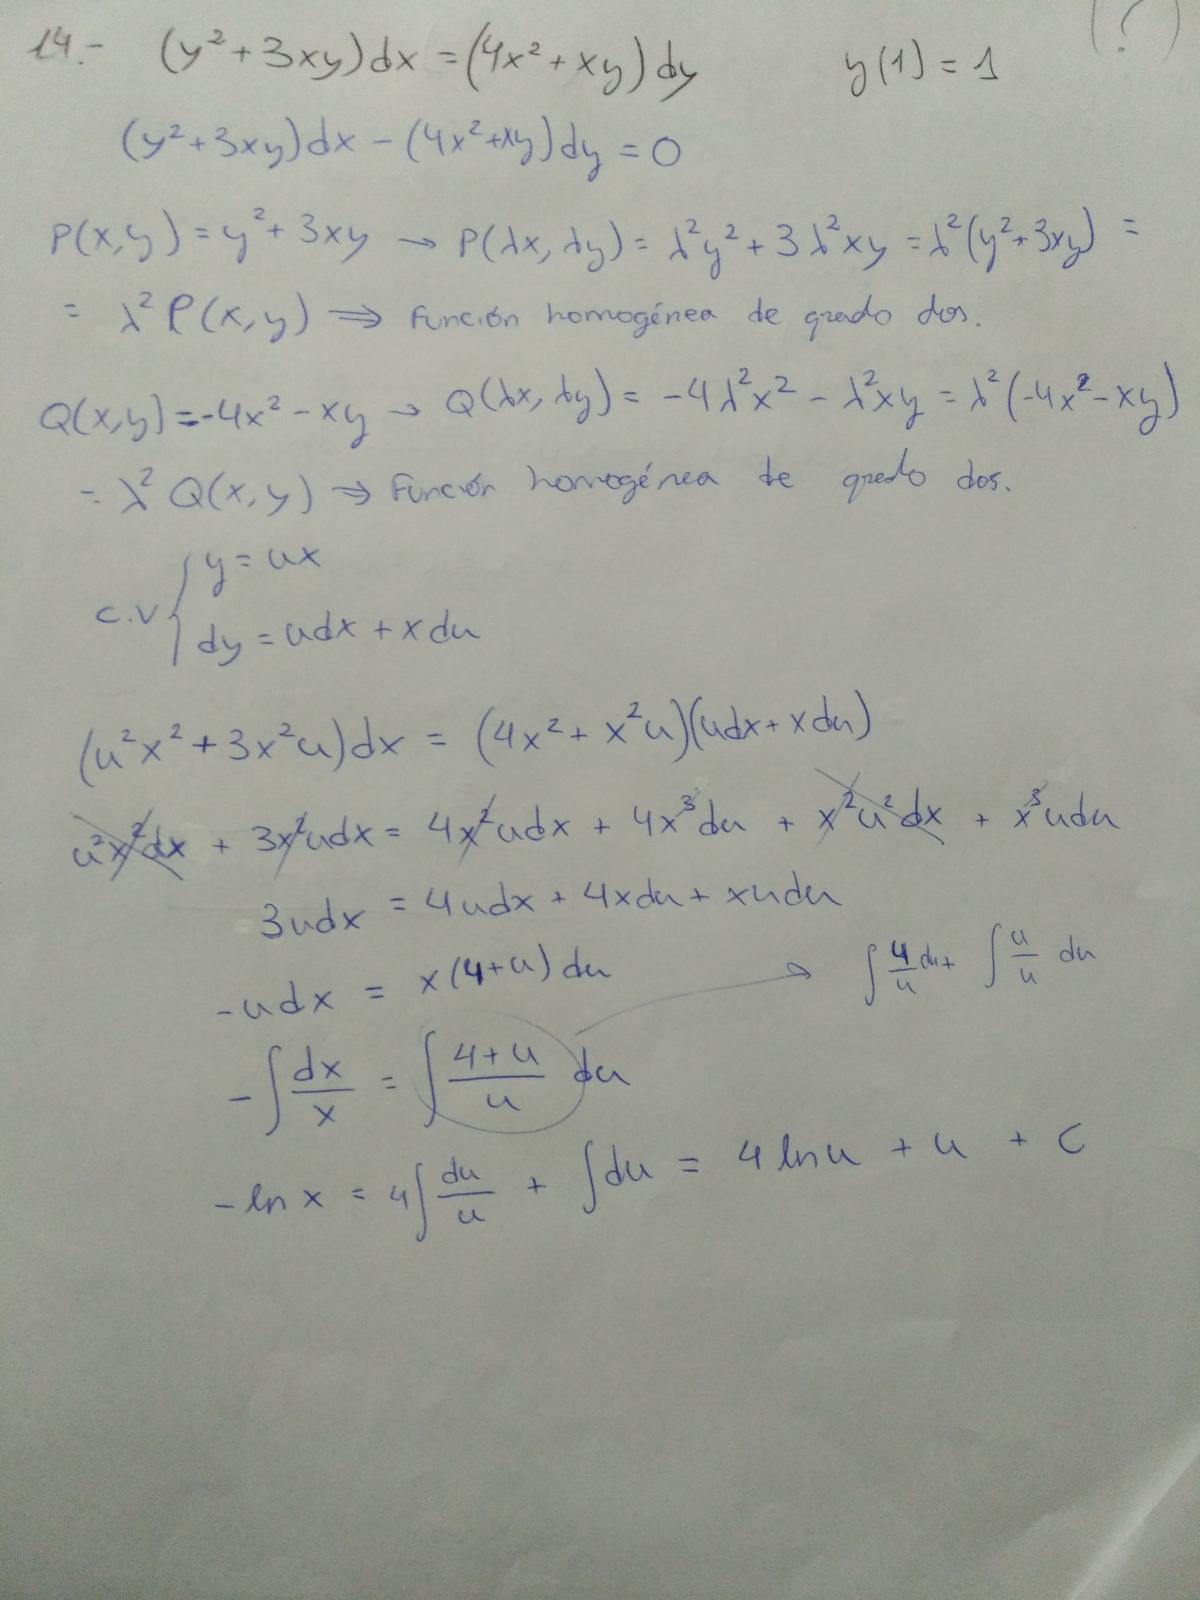 14.- (y² + 3xy)dx = (4x² + xy)dy y(1) = 1 (?)
(y² + 3xy)dx - (4x² + xy)dy = 0
P(x,y) = y² + 3xy → P(λx, λy) = λ²y² + 3λ²xy = λ²(y² + 3xy) =
= λ² P(x,y) ⇒ Función homogénea de grado dos.
Q(x,y) = -4x² - xy → Q(λx, λy) = -4λ²x² - λ²xy = λ²(-4x² - xy)
= λ² Q(x,y) ⇒ Función homogénea de grado dos.
C.V { y = ux
dy = udx + xdu
(u²x² + 3x²u)dx = (4x² + x²u)(udx + xdu)
u²x²dx + 3x²udx = 4x²udx + 4x³du + x²u²dx + x³udu
3udx = 4udx + 4xdu + xudu
-udx = x(4+u)du → ∫ 4/u du + ∫ u/u du
-∫ dx/x = ∫ (4+u)/u du
-ln x = 4∫ du/u + ∫du = 4 ln u + u + C